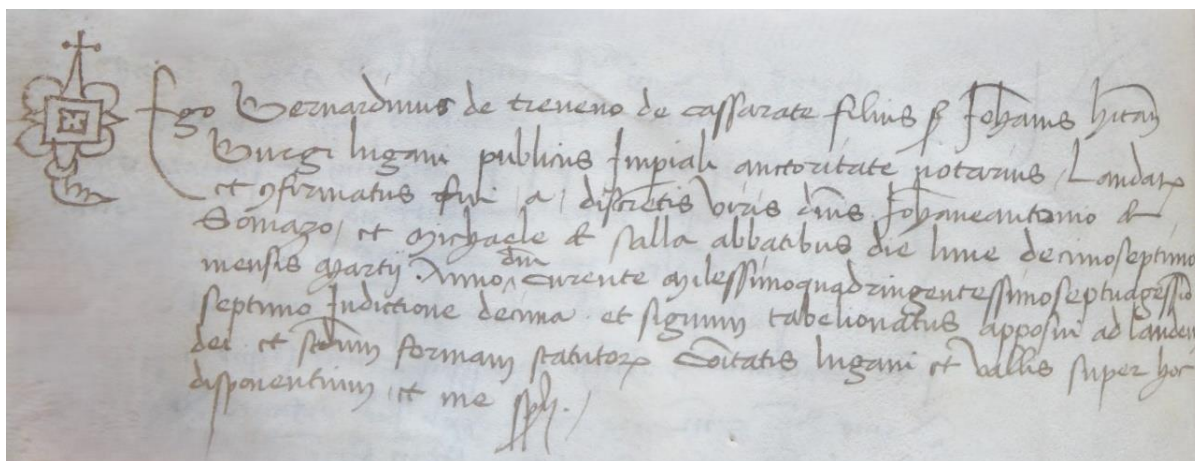 Ego Bernardinus de treveno de cassarate filius q Johanis hitan
Burgi lugani publicus Impiali auctoritate notarius, Laudatꝝ
et ꝯfirmatus fui a discretis viris dnis Johaneantonio de
Somazo, et Michaele de Salla abbatibus die lune decimoseptimo
mensis Martij. Anno dni Curente Milessimoquadringentessimoseptuagessio
septimo Indictione decima. et signum tabelionatus apposui ad laudem
dei et scdum formam statutoꝝ Coitatis lugani et vallis super hoc
disponentium, et me